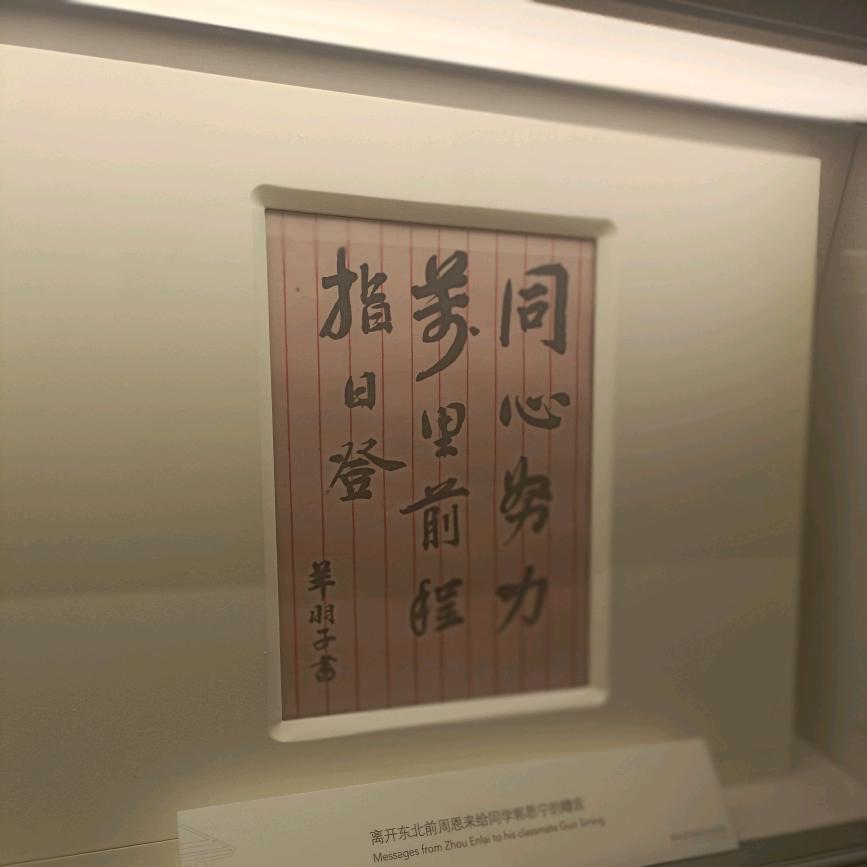 同心努力
萬里前程
指日登
羊羽子書
离开东北前周恩来给同学郭思宁的赠言
Messages from Zhou Enlai to his classmate Guo Sining